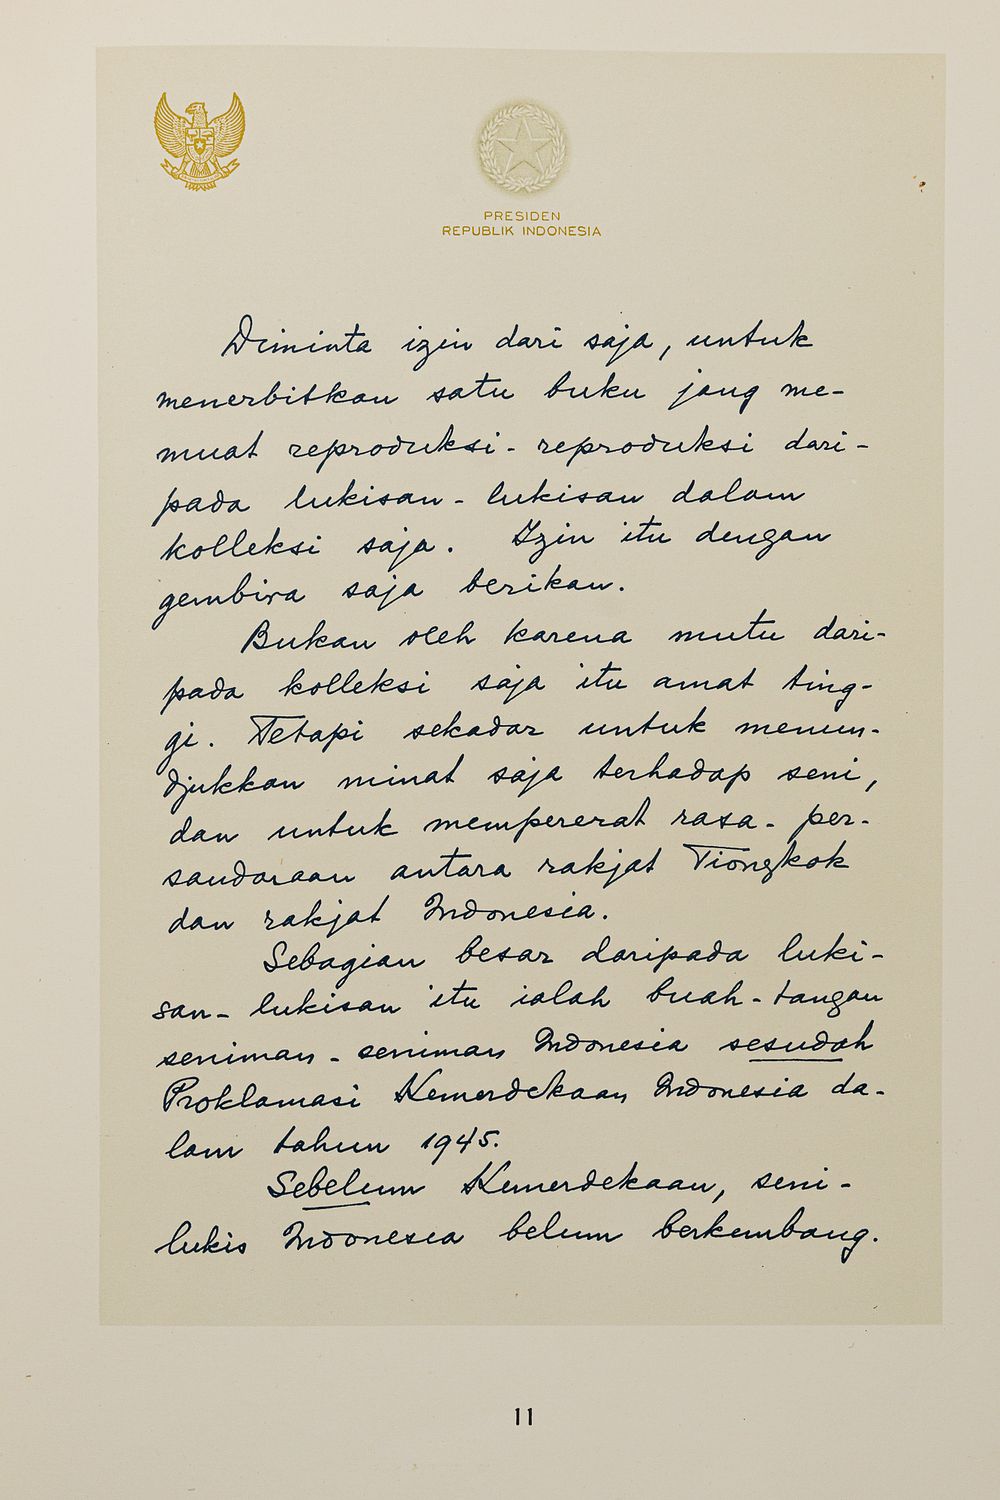 PRESIDEN
REPUBLIK INDONESIA
Diminta izin dari saja, untuk
menerbitkan satu buku jang me-
muat reproduksi-reproduksi dari-
pada lukisan-lukisan dalam
kolleksi saja. Izin itu dengan
gembira saja berikan.
Bukan oleh karena mutu dari-
pada kolleksi saja itu amat ting-
gi. Tetapi sekadar untuk menun-
djukkan minat saja terhadap seni,
dan untuk mempererat rasa-per-
saudaraan antara rakjat Tiongkok
dan rakjat Indonesia.
Sebagian besar daripada luki-
san-lukisan itu ialah buah-tangan
seniman-seniman Indonesia sesudah
Proklamasi Kemerdekaan Indonesia da-
lam tahun 1945.
Sebelum Kemerdekaan, seni-
lukis Indonesia belum berkembang.
11